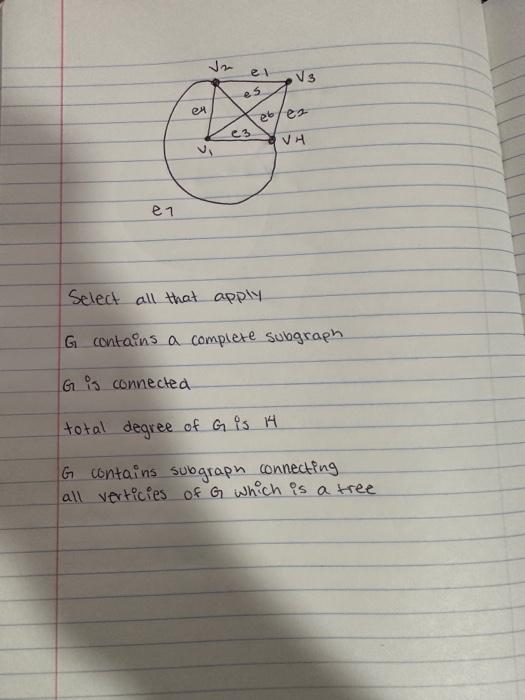 V2 e1 V3
e5
e4 e6 e2
e3
V1 V4
e7
Select all that apply
G contains a complete subgraph
G is connected
total degree of G is 14
G contains subgraph connecting
all verticies of G which is a tree